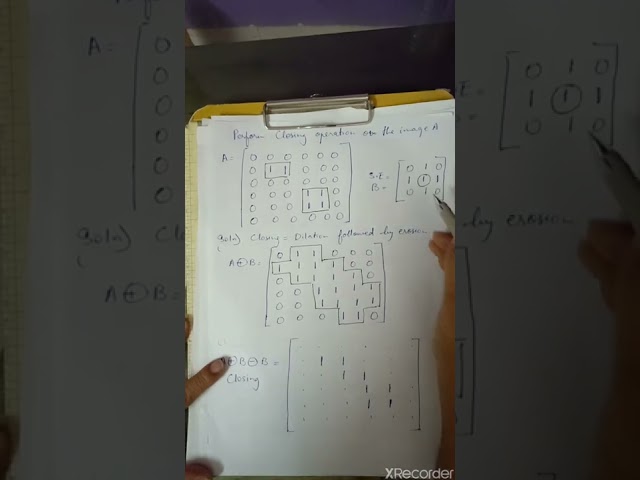 Perform Closing operation on the image A
A =
0 0 0 0 0 0
0 1 1 0 0 0
0 0 0 0 0 0
0 0 0 1 1 0
0 0 0 1 1 0
0 0 0 0 0 0
S.E =
B =
0 1 0
1 1 1
0 1 0
Soln) Closing = Dilation followed by erosion
A ⊕ B =
0 1 1 0 0 0
1 1 1 1 0 0
0 1 1 1 1 0
0 0 1 1 1 1
0 0 1 1 1 1
0 0 0 1 1 0
A ⊕ B ⊖ B =
Closing
. . . . . .
. 1 1 . . .
. . 1 1 . .
. . . 1 1 .
. . . 1 1 .
. . . . . .
XRecorder